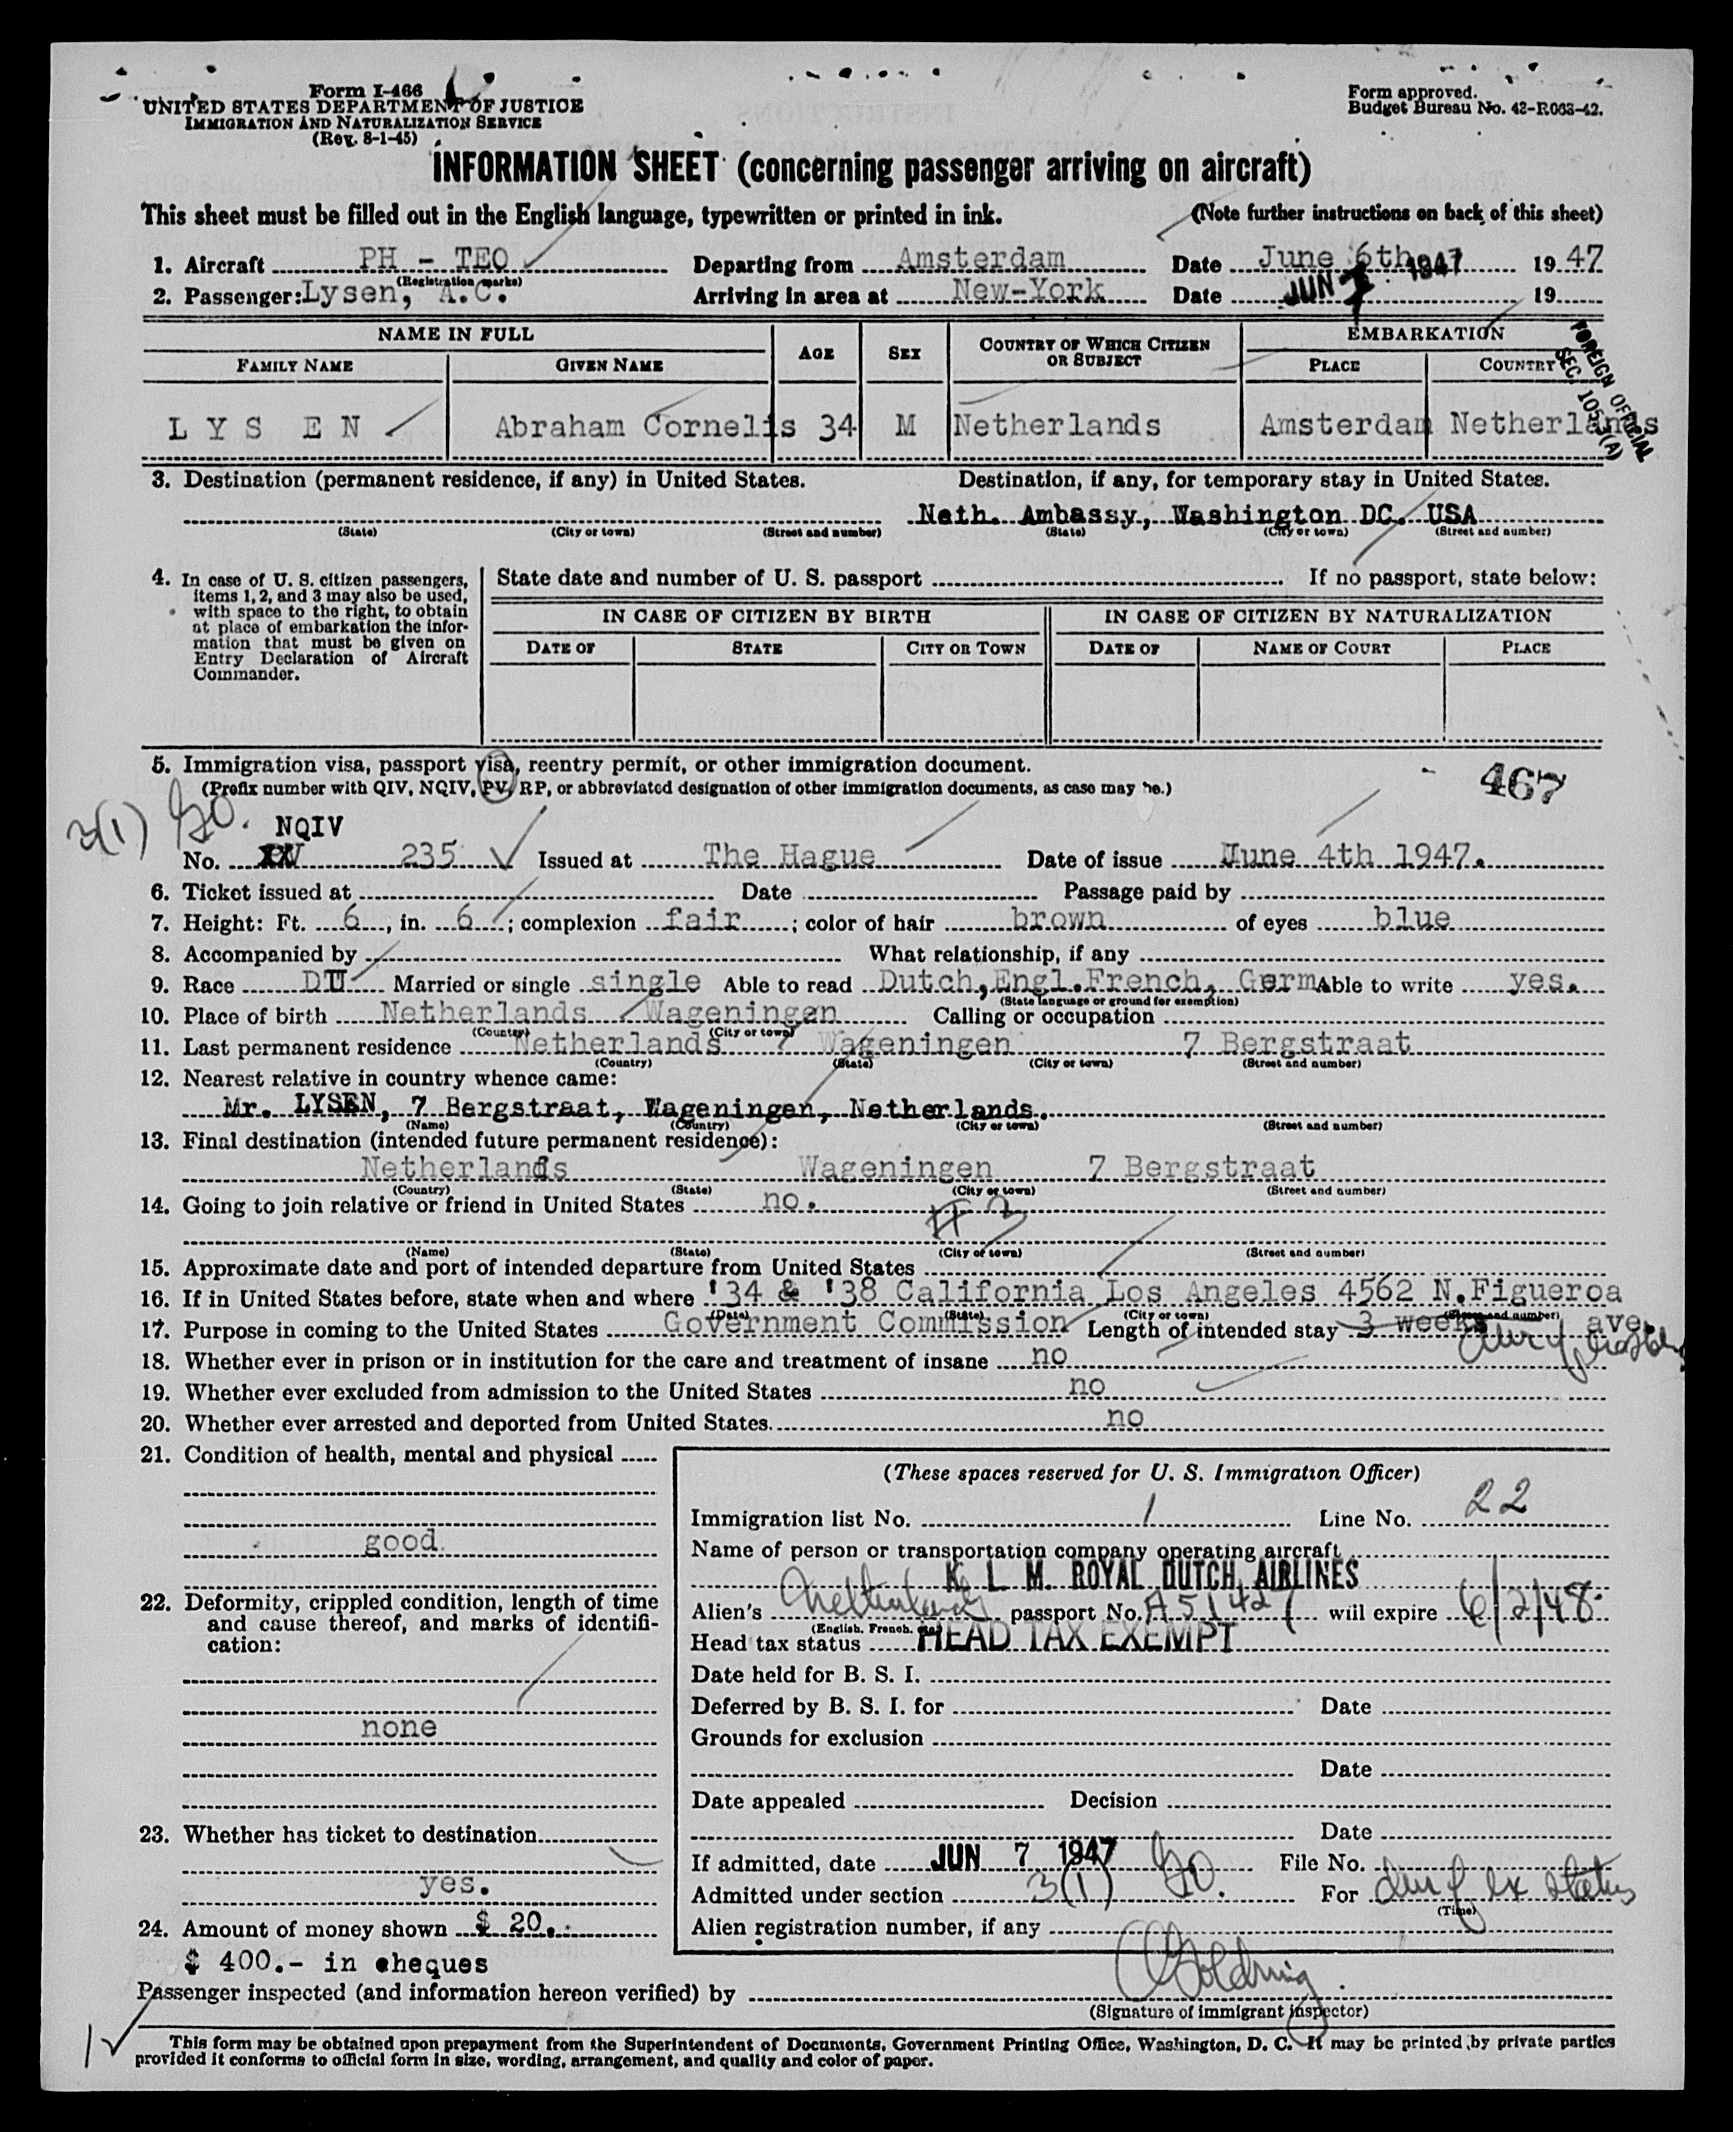 Form I-466
UNITED STATES DEPARTMENT OF JUSTICE
IMMIGRATION AND NATURALIZATION SERVICE
(Rev. 8-1-45)
Form approved.
Budget Bureau No. 42-R063-42.
INFORMATION SHEET (concerning passenger arriving on aircraft)
This sheet must be filled out in the English language, typewritten or printed in ink. (Note further instructions on back of this sheet)
1. Aircraft PH - TEO Departing from Amsterdam Date June 6th. 1947 1947
(Registration marks)
2. Passenger: Lysen, A.C. Arriving in area at New-York Date JUN 7 19
NAME IN FULL AGE SEX COUNTRY OF WHICH CITIZEN OR SUBJECT EMBARKATION
FAMILY NAME GIVEN NAME PLACE COUNTRY
FOREIGN OFFICIAL
LYSEN Abraham Cornelis 34 M Netherlands Amsterdam Netherlands
3. Destination (permanent residence, if any) in United States. Destination, if any, for temporary stay in United States.
Neth. Ambassy, Washington DC. USA
(State) (City or town) (Street and number) (State) (City or town) (Street and number)
4. In case of U. S. citizen passengers, items 1, 2, and 3 may also be used, with space to the right, to obtain at place of embarkation the information that must be given on Entry Declaration of Aircraft Commander.
State date and number of U. S. passport If no passport, state below:
IN CASE OF CITIZEN BY BIRTH IN CASE OF CITIZEN BY NATURALIZATION
DATE OF STATE CITY OR TOWN DATE OF NAME OF COURT PLACE
5. Immigration visa, passport visa, reentry permit, or other immigration document.
(Prefix number with QIV, NQIV, PV, RP, or abbreviated designation of other immigration documents, as case may be.)
467
3(1)
NQIV
No. 235 Issued at The Hague Date of issue June 4th 1947.
6. Ticket issued at Date Passage paid by
7. Height: Ft. 6, in. 6; complexion fair; color of hair brown of eyes blue
8. Accompanied by What relationship, if any
9. Race DU Married or single single Able to read Dutch, Engl. French, Germ Able to write yes.
(State language or ground for exemption)
10. Place of birth Netherlands Wageningen Calling or occupation
(Country) (City or town)
11. Last permanent residence Netherlands Wageningen 7 Bergstraat
(Country) (State) (City or town) (Street and number)
12. Nearest relative in country whence came:
Mr. LYSEN, 7 Bergstraat, Wageningen, Netherlands.
(Name) (Country) (City or town) (Street and number)
13. Final destination (intended future permanent residence):
Netherlands Wageningen 7 Bergstraat
(Country) (State) (City or town) (Street and number)
14. Going to join relative or friend in United States no.
#3
(Name) (State) (City or town) (Street and number)
15. Approximate date and port of intended departure from United States
16. If in United States before, state when and where '34 & '38 California Los Angeles 4562 N.Figueroa
(Date) (State) (City or town) (Street and number)
17. Purpose in coming to the United States Government Commission Length of intended stay 3 weeks ave.
18. Whether ever in prison or in institution for the care and treatment of insane no
19. Whether ever excluded from admission to the United States no
20. Whether ever arrested and deported from United States. no
21. Condition of health, mental and physical
good.
22. Deformity, crippled condition, length of time and cause thereof, and marks of identification:
none
23. Whether has ticket to destination
yes.
24. Amount of money shown $ 20.
$ 400.- in cheques
(These spaces reserved for U. S. Immigration Officer)
Immigration list No. 1 Line No. 22
Name of person or transportation company operating aircraft
K. L. M. ROYAL DUTCH AIRLINES
Alien's Netherlands passport No. A51427 will expire 6/2/48
(English, French, etc.)
Head tax status HEAD TAX EXEMPT
Date held for B. S. I.
Deferred by B. S. I. for Date
Grounds for exclusion
Date
Date appealed Decision
Date
If admitted, date JUN 7 1947 File No.
Admitted under section 3(1) For dur of ex status
(Time)
Alien registration number, if any
Passenger inspected (and information hereon verified) by
(Signature of immigrant inspector)
This form may be obtained upon prepayment from the Superintendent of Documents, Government Printing Office, Washington, D. C. It may be printed by private parties
provided it conforms to official form in size, wording, arrangement, and quality and color of paper.